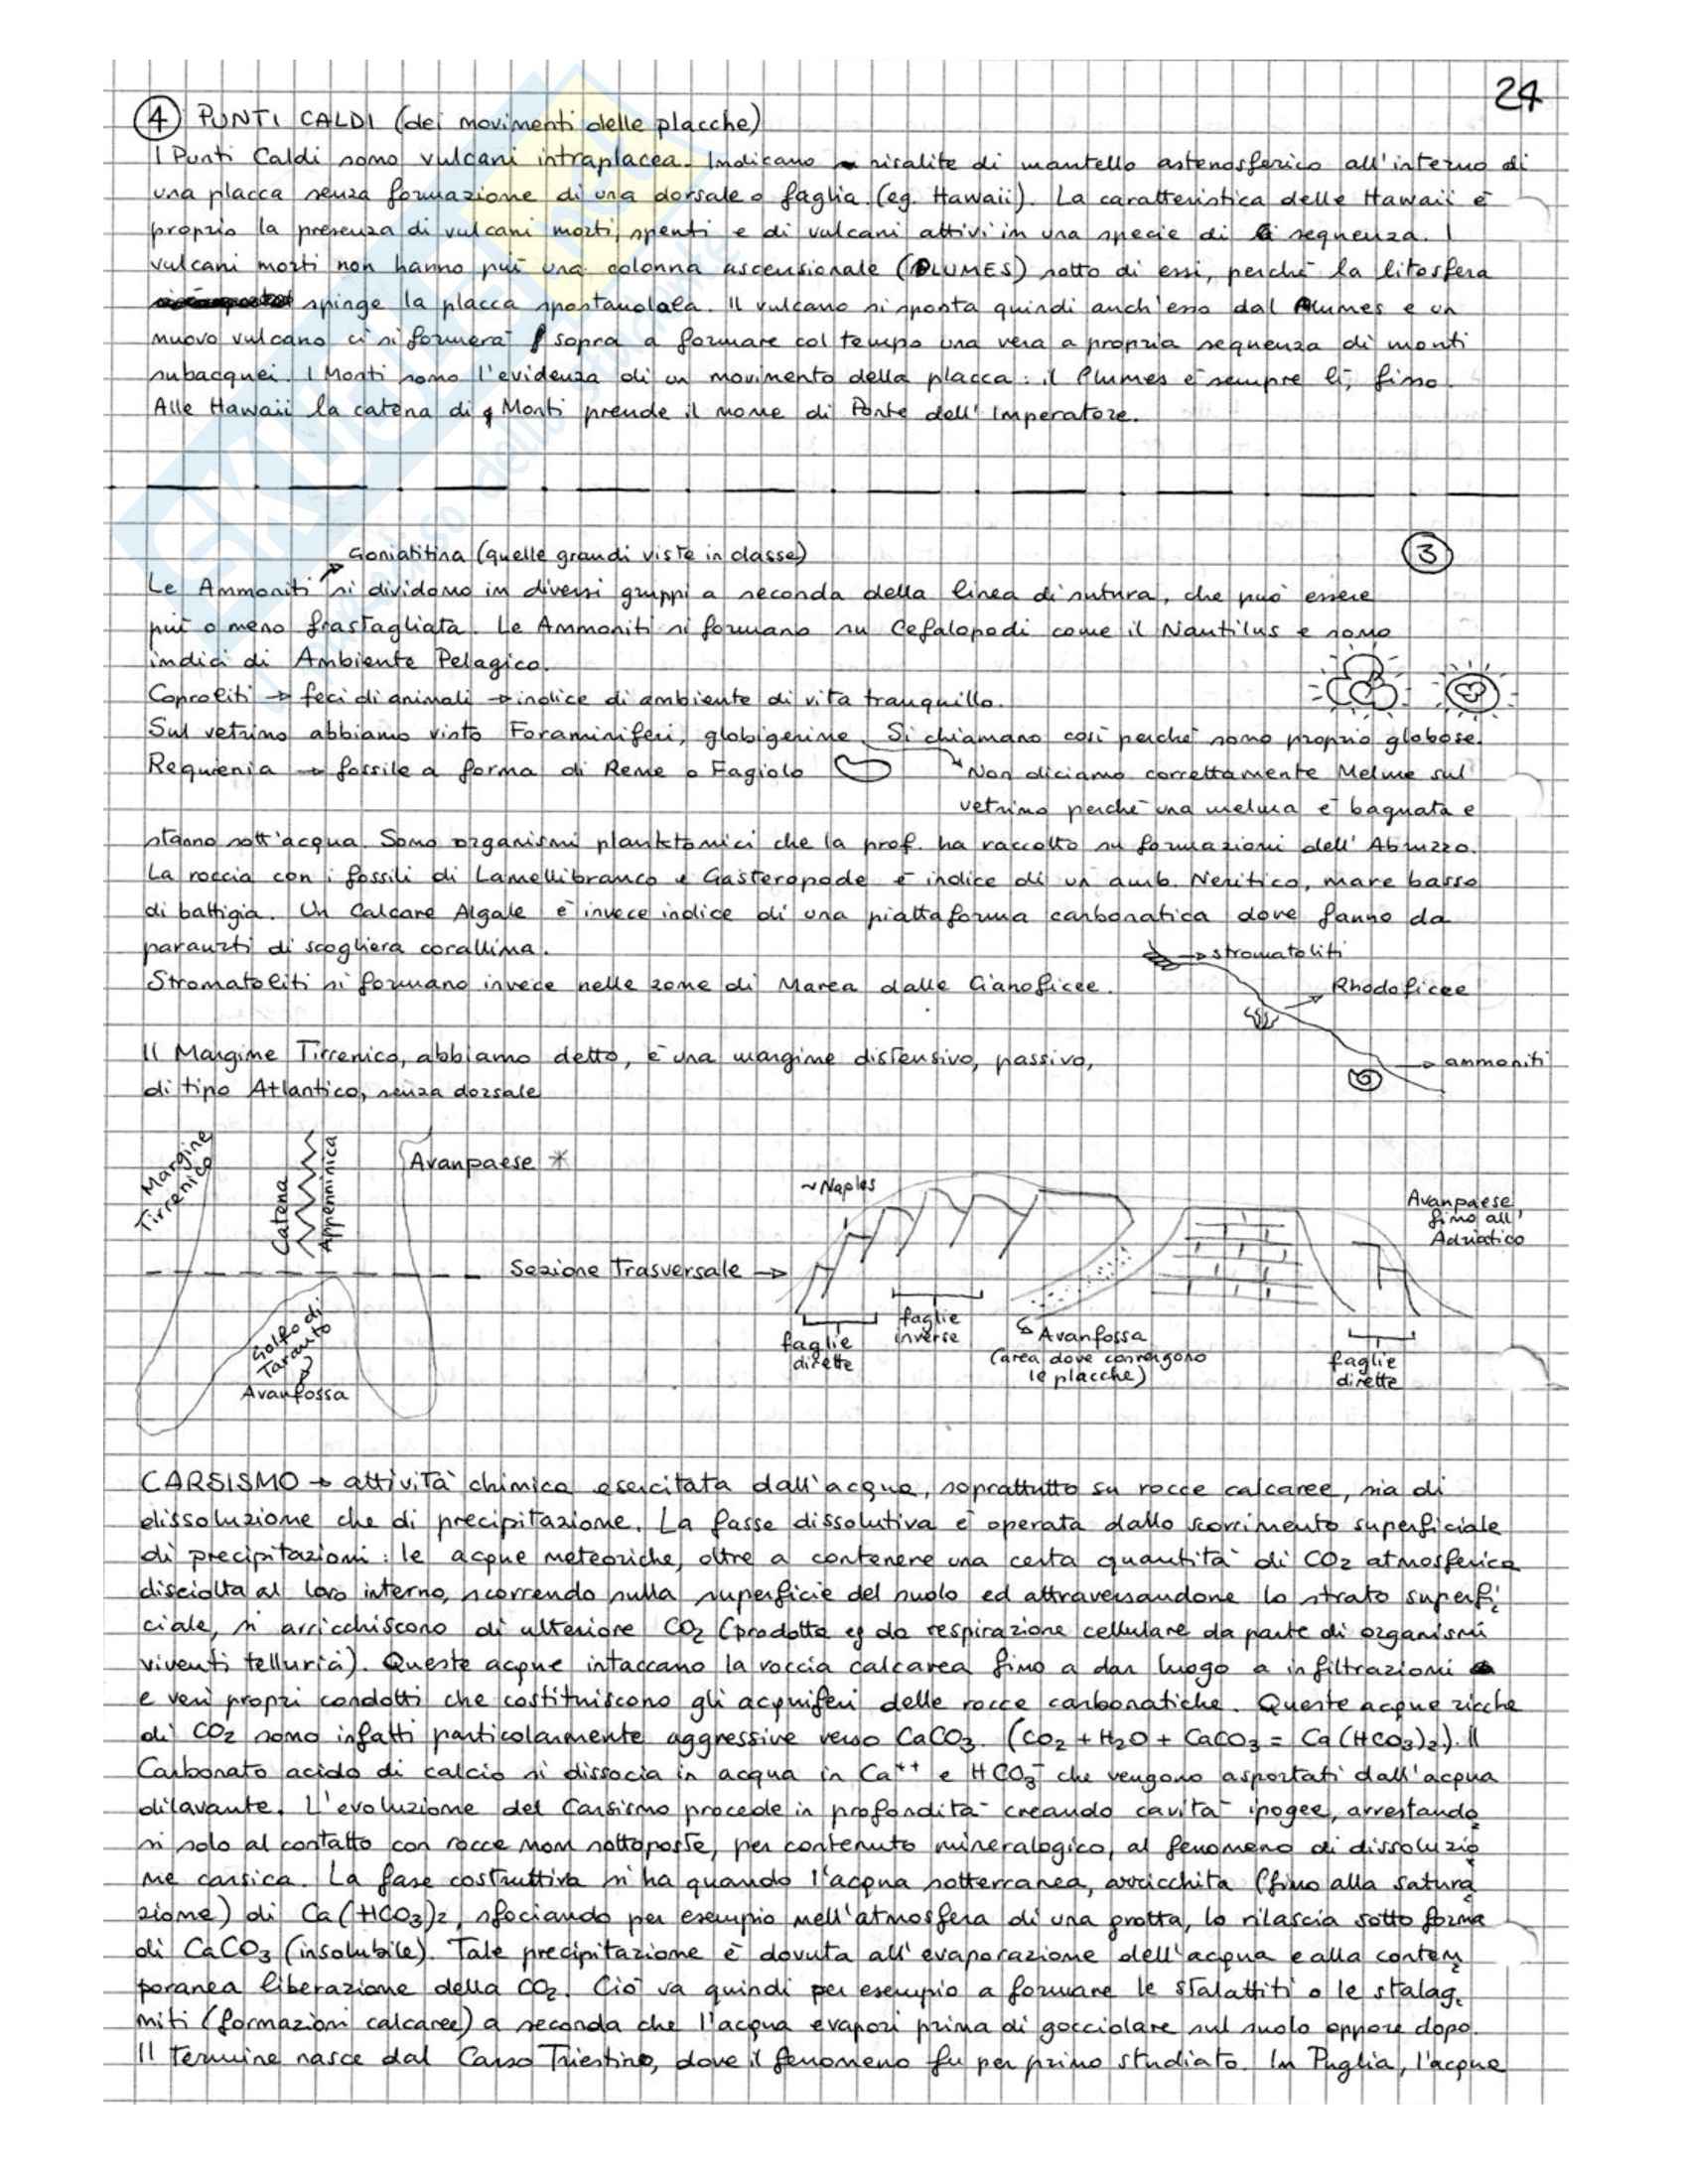 24
④ PUNTI CALDI (dei movimenti delle placche)
I Punti Caldi sono vulcani intraplacca. Indicano risalite di mantello astenosferico all'interno di
una placca senza formazione di una dorsale o faglia (eg. Hawaii). La caratteristica delle Hawaii è
proprio la presenza di vulcani morti, spenti e di vulcani attivi in una specie di sequenza. I
vulcani morti non hanno più una colonna ascensionale (PLUMES) sotto di essi, perché la litosfera
spinge la placca spostandola. Il vulcano si sposta quindi anch'esso dal Plumes e un
nuovo vulcano ci si formerà sopra a formare col tempo una vera a propria sequenza di monti
subacquei. I Monti sono l'evidenza di un movimento della placca: il Plumes è sempre lì, fisso.
Alle Hawaii la catena di Monti prende il nome di Ponte dell'Imperatore.
③
Goniatitina (quelle grandi viste in classe)
Le Ammoniti si dividono in diversi gruppi a seconda della linea di sutura, che può essere
più o meno frastagliata. Le Ammoniti si formano su Cefalopodi come il Nautilus e sono
indici di Ambiente Pelagico.
Coproliti → feci di animali → indice di ambiente di vita tranquillo.
Sul vetrino abbiamo visto Foraminiferi, globigerine. Si chiamano così perché sono proprio globose.
Requienia → fossile a forma di Rene o Fagiolo
Non diciamo correttamente Melme sul
vetrino perché una melma è bagnata e
stanno sott'acqua. Sono organismi planktonici che la prof. ha raccolto su formazioni dell'Abruzzo.
La roccia con i fossili di Lamellibranco e Gasteropode è indice di un amb. Neritico, mare basso
di battigia. Un Calcare Algale è invece indice di una piattaforma carbonatica dove fanno da
paraurti di scogliera corallina.
→ stromatoliti
Stromatoliti si formano invece nelle zone di Marea dalle Cianoficee.
Rhodoficee
Il Margine Tirrenico, abbiamo detto, è una margine distensivo, passivo,
→ ammoniti
di tipo Atlantico, senza dorsale
Margine
Tirrenico
Catena
Appenninica
Avanpaese *
~ Naples
Avanpaese,
fino all'
Adriatico
Sezione Trasversale →
Golfo di
Taranto
Avanfossa
faglie
dirette
faglie
inverse
Avanfossa
(area dove convergono
le placche)
faglie
dirette
CARSISMO → attività chimica esercitata dall'acqua, soprattutto su rocce calcaree, sia di
dissoluzione che di precipitazione. La fasse dissolutiva è operata dallo scorrimento superficiale
di precipitazioni: le acque meteoriche, oltre a contenere una certa quantità di CO2 atmosferica
disciolta al loro interno, scorrendo sulla superficie del suolo ed attraversandone lo strato superfi
ciale, si arricchiscono di ulteriore CO2 (prodotta eg da respirazione cellulare da parte di organismi
viventi telluria). Queste acque intaccano la roccia calcarea fino a dar luogo a infiltrazioni
e veri propri condotti che costituiscono gli acquiferi delle rocce carbonatiche. Queste acque ricche
di CO2 sono infatti particolarmente aggressive verso CaCO3. (CO2 + H2O + CaCO3 = Ca(HCO3)2). Il
Carbonato acido di calcio si dissocia in acqua in Ca++ e HCO3- che vengono asportati dall'acqua
dilavante. L'evoluzione del Carsismo procede in profondità creando cavità ipogee, arrestando
si solo al contatto con rocce non sottoposte, per contenuto mineralogico, al fenomeno di dissoluzio
ne carsica. La fase costruttiva si ha quando l'acqua sotterranea, arricchita (fino alla satura
zione) di Ca(HCO3)2, sfociando per esempio nell'atmosfera di una grotta, lo rilascia sotto forma
di CaCO3 (insolubile). Tale precipitazione è dovuta all'evaporazione dell'acqua e alla contem
poranea liberazione della CO2. Ciò va quindi per esempio a formare le stalattiti o le stalag
miti (formazioni calcaree) a seconda che l'acqua evapori prima di gocciolare sul suolo oppore dopo.
Il termine nasce dal Carso Triestino, dove il fenomeno fu per primo studiato. In Puglia, l'acque